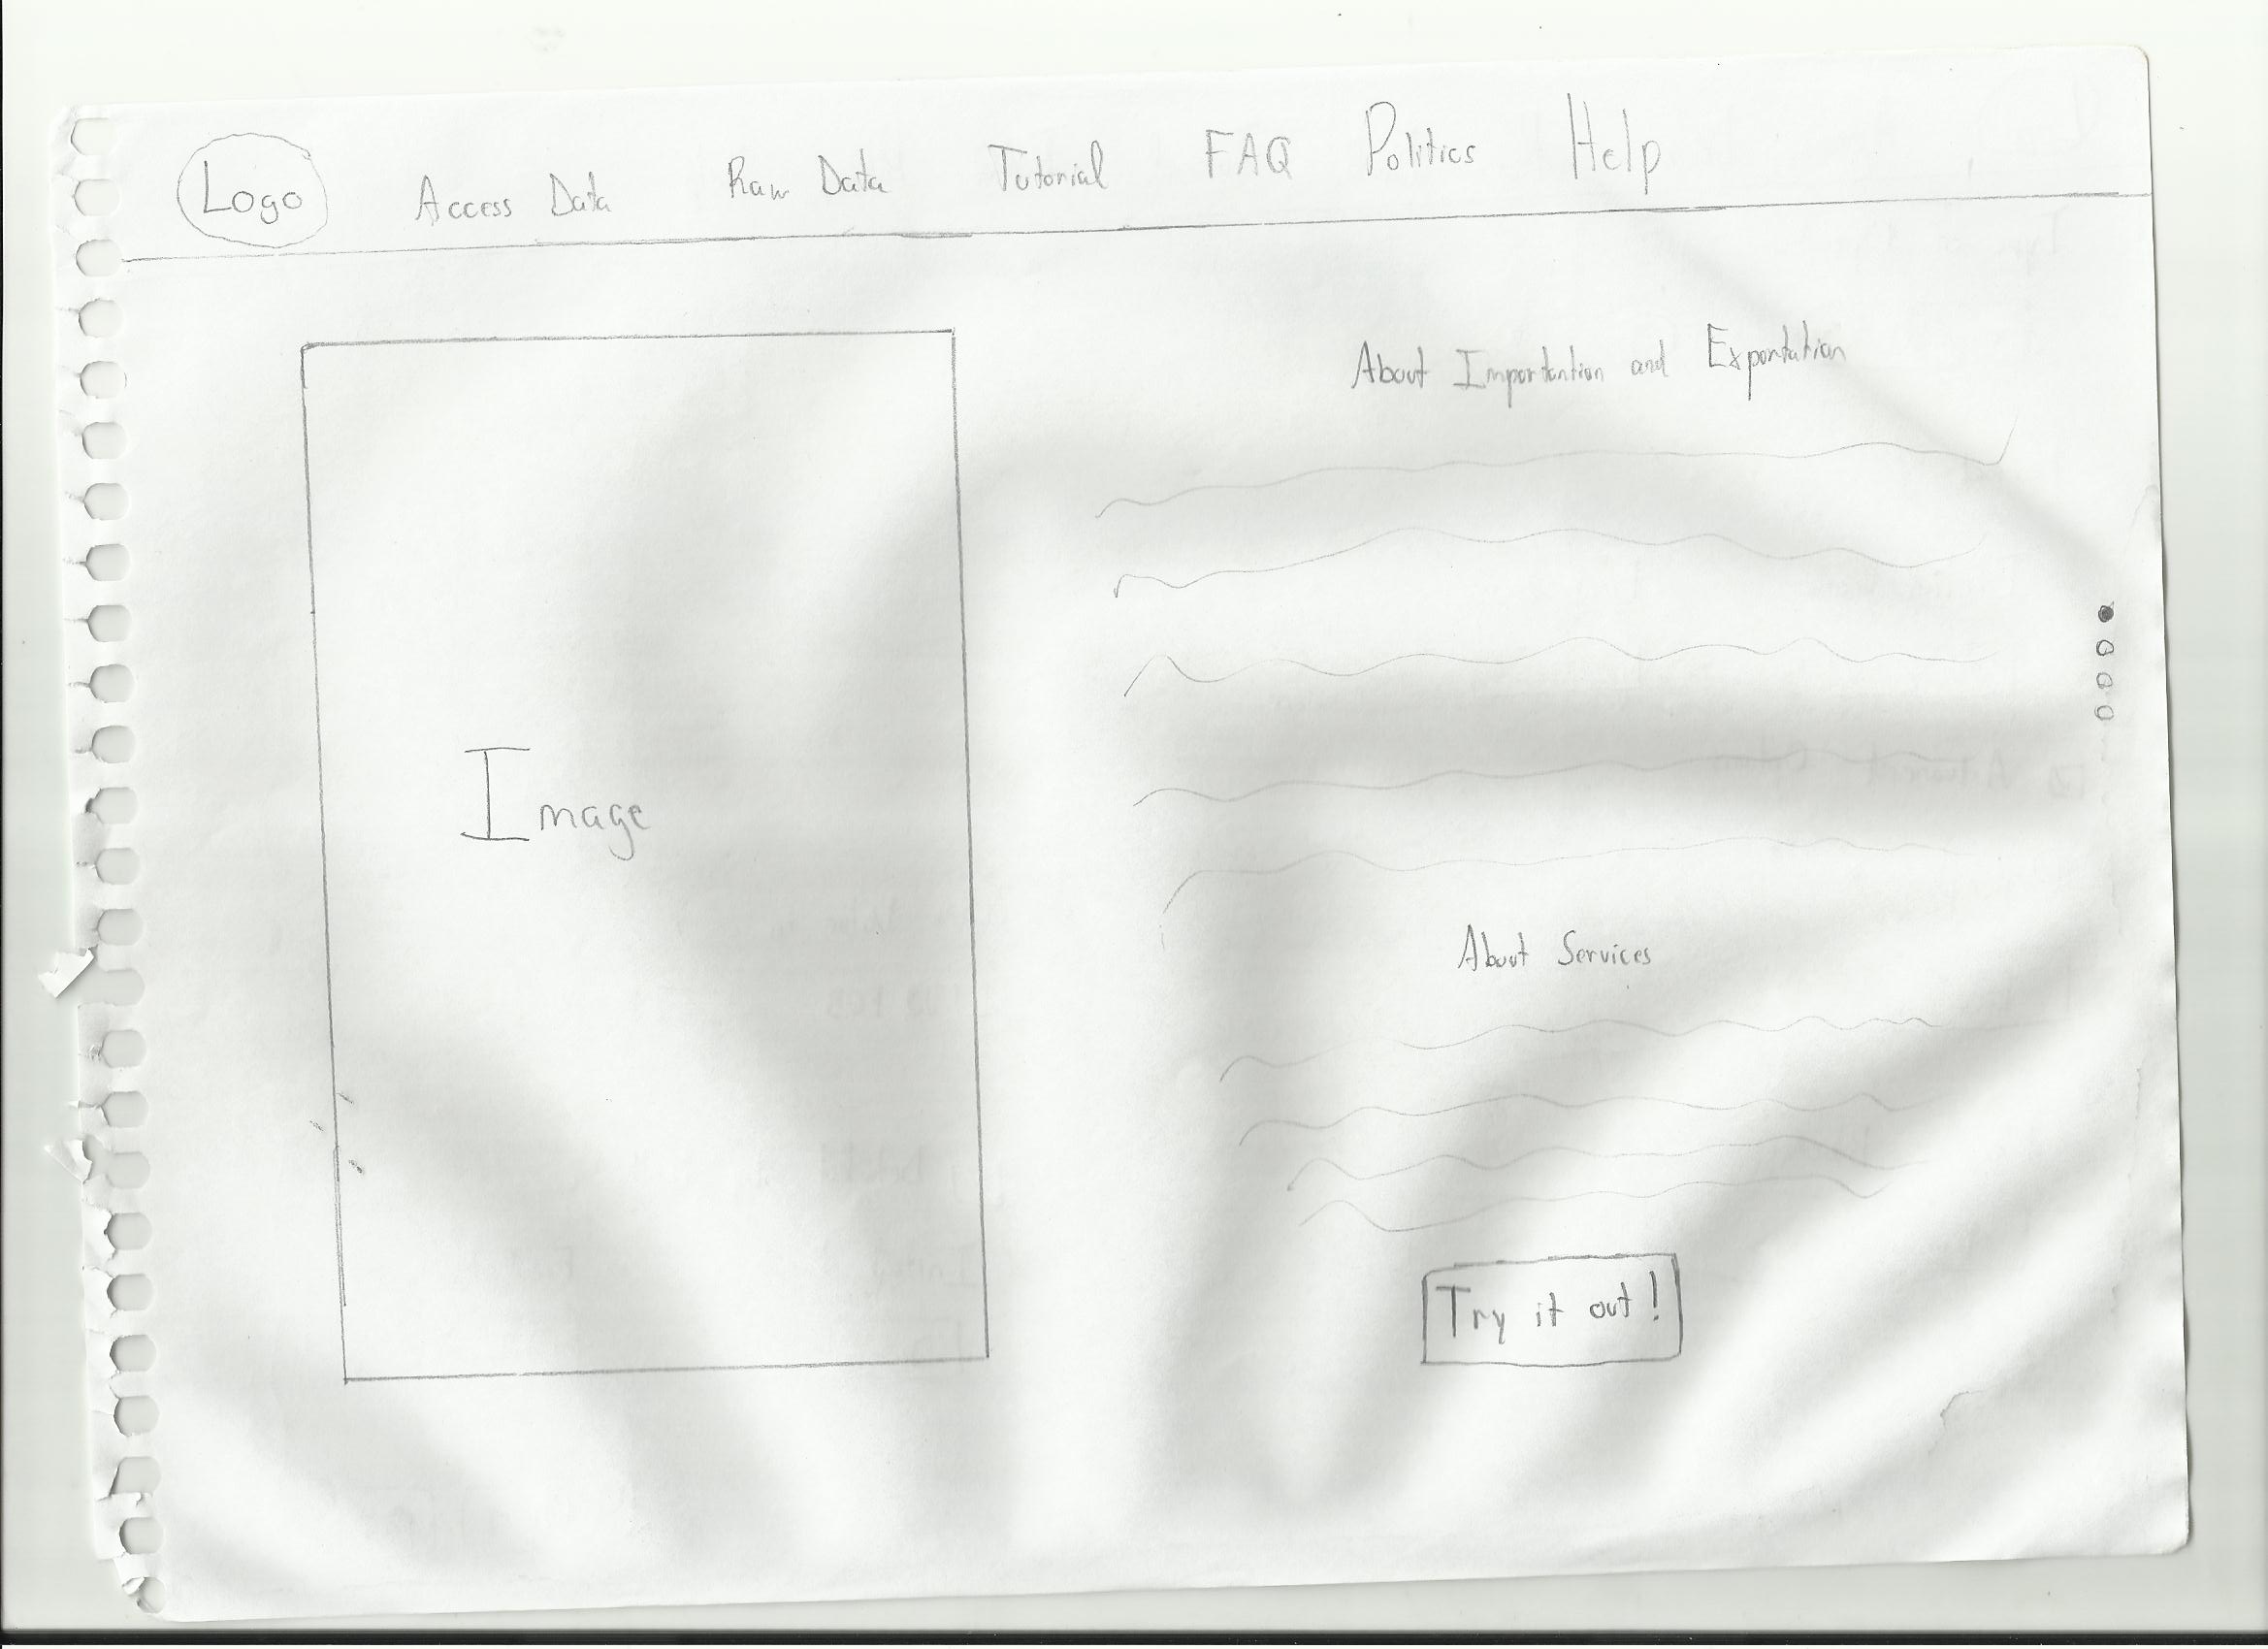 Logo Access Data Raw Data Tutorial FAQ Politics Help
About Importantion and Exportation
Image
About Services
Try it out!